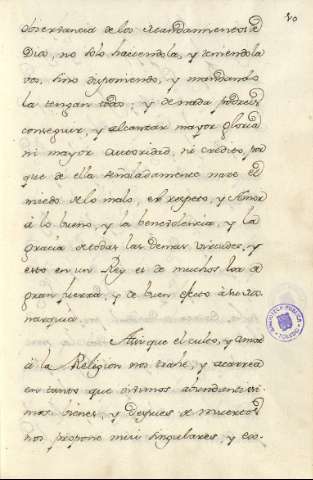 10
observancia de los Mandamientos de
Dios, no solo haciendola, y teniendola
vos, sino disponiendo, y mandando
la tengan todos; y de nada podreis
conseguir, y alcanzar mayor gloria
ni mayor autoridad, ni credito, por
que de ella señaladamente nace el
miedo de lo malo, el respeto, y Amor
à lo bueno, y la benevolencia, y la
gracia de todas las demas virtudes, y
esto en un Rey es de muchos loa de
gran fuerza, y de buen efecto à su Mo-
narquia.
Aunque el culto, y amor
à la Religion nos trahe, y acarrea
en vida que vivimos abundantisi-
mos bienes, y despues de muertos
nos propone mui singulares, y co-
BIBLIOTECA PUBLICA
TOLEDO